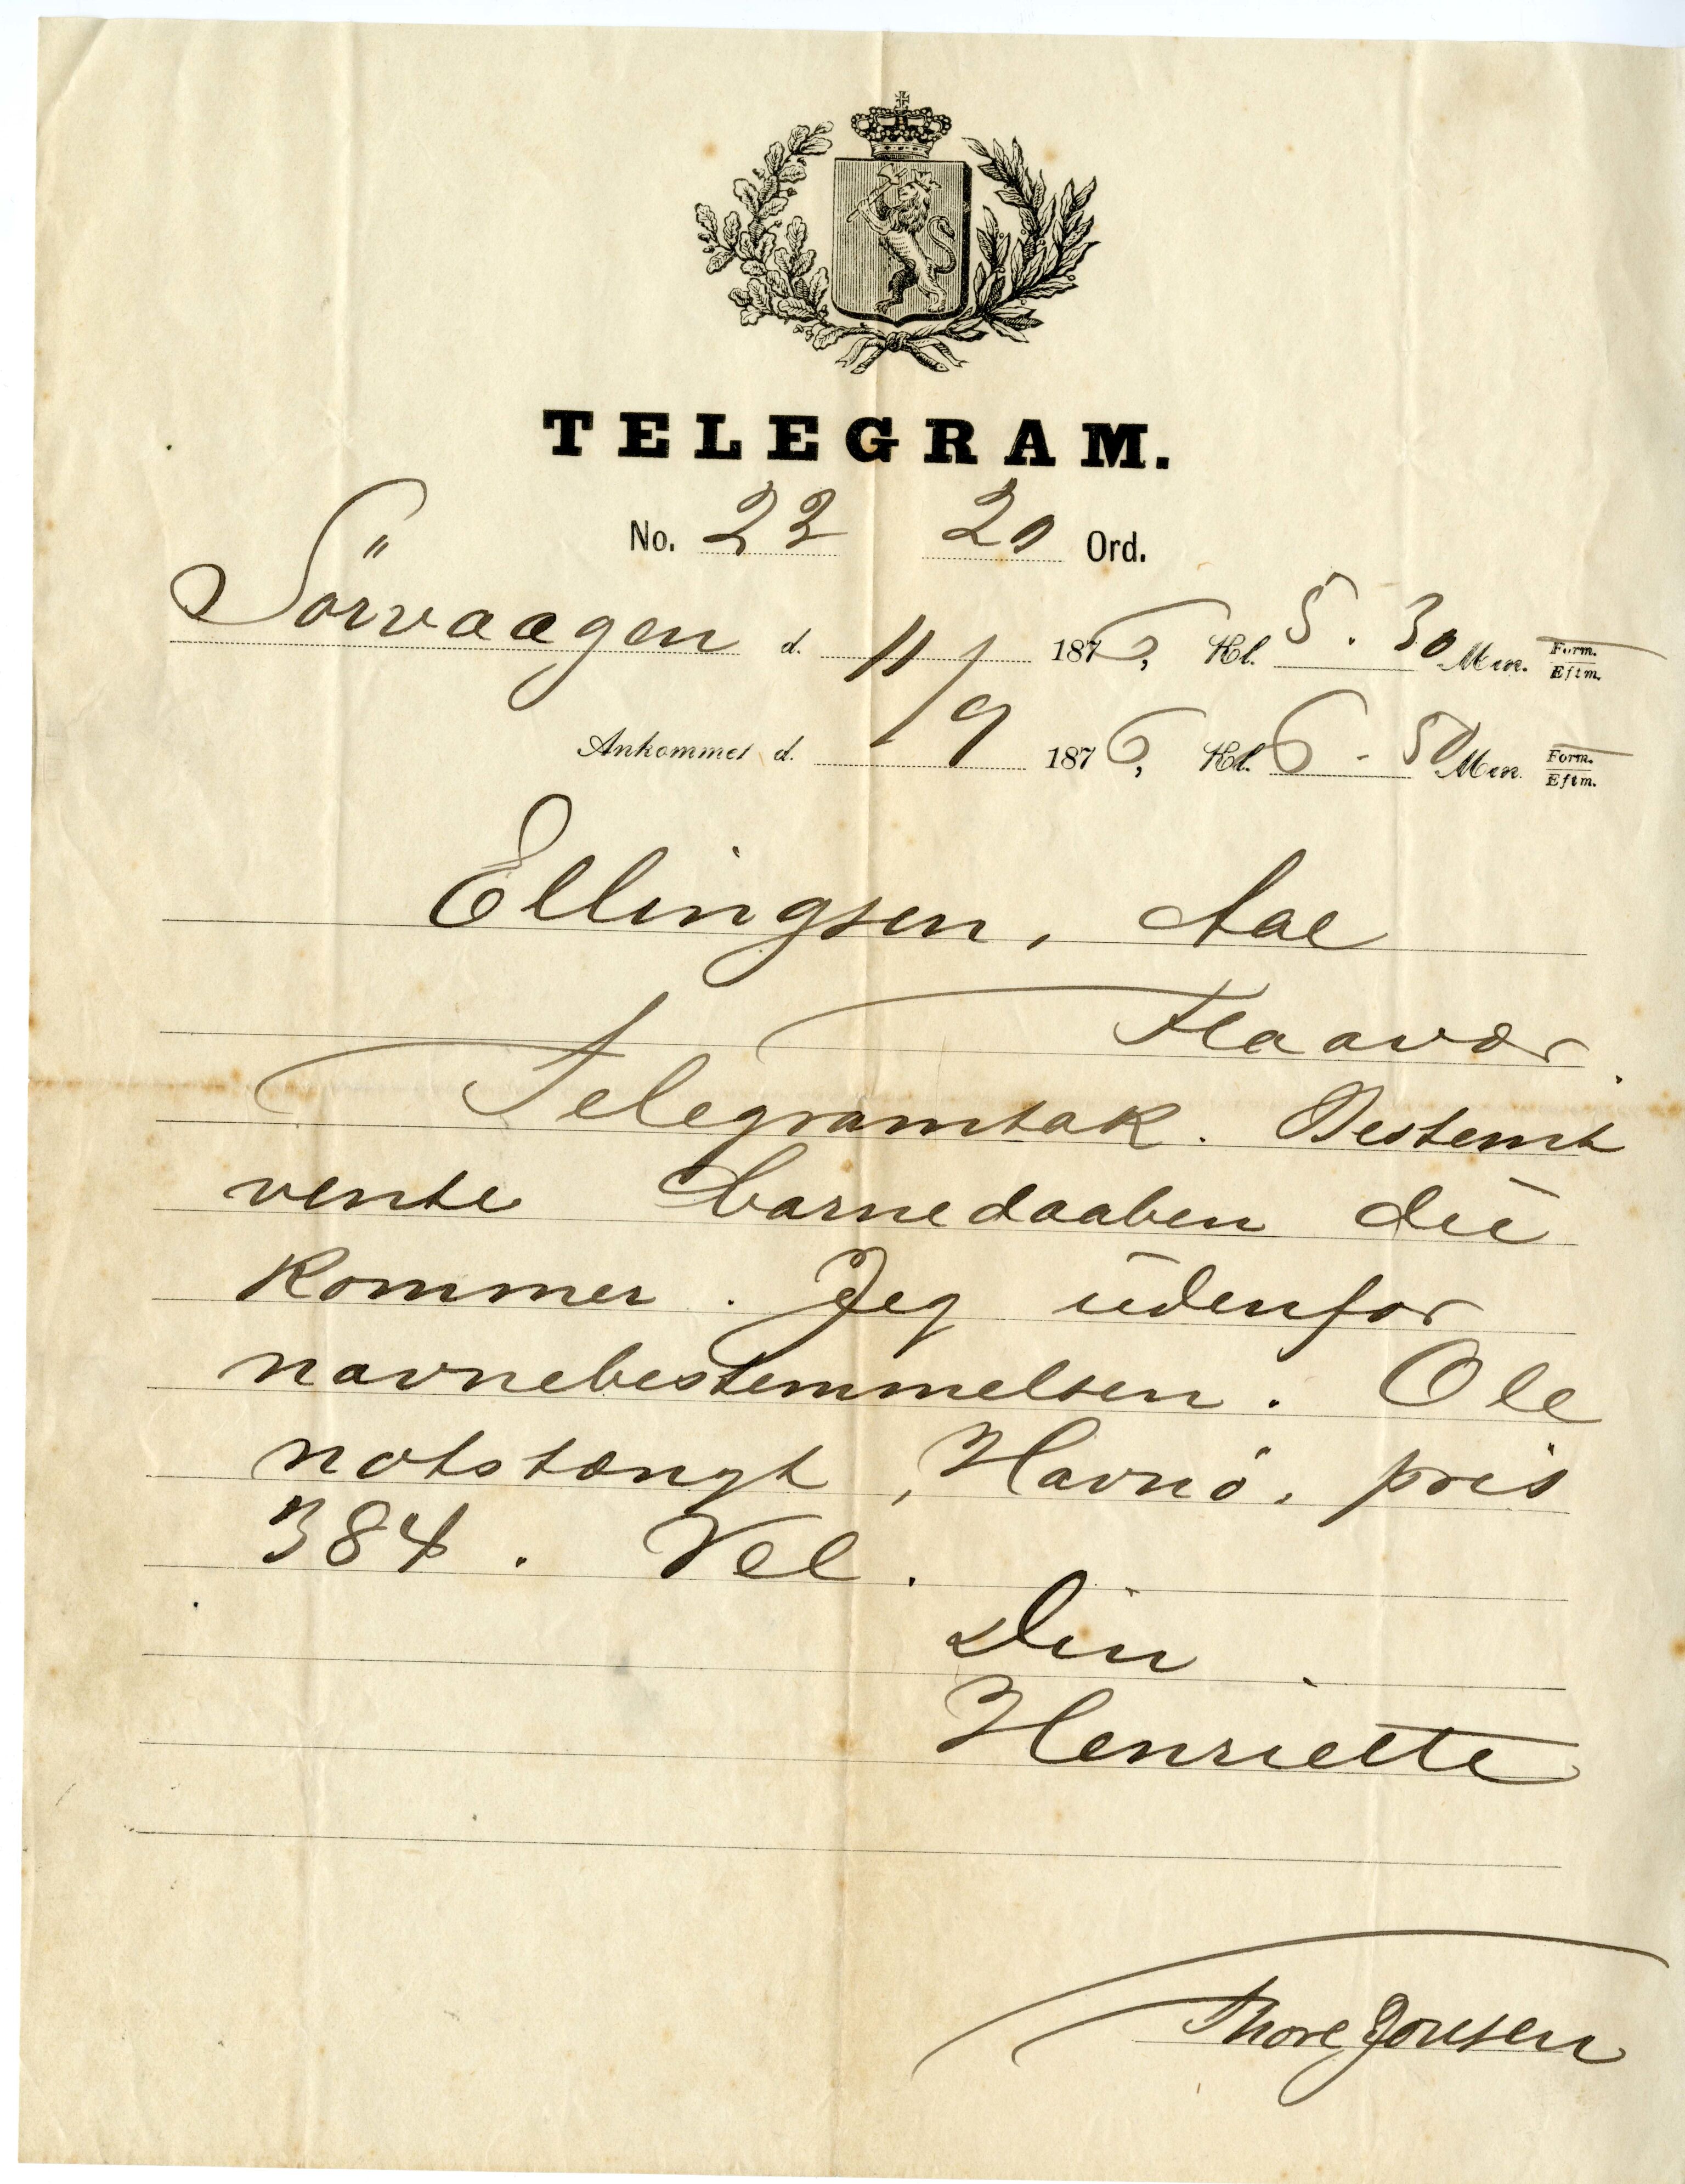 TELEGRAM.
No. 22 20 Ord.
Sörvaagen d. 11/9 1876, Kl. 5.30 Min. Form. Eftm.
Ankommet d. 1876, Kl. 6-50 Min. Form. Eftm.
Ellingsen, Aae
Flaavær.
Telegramtak. Bestemt
vente barnedaaben du
kommer. Jeg udenfor
navnebestemmelsen. Ole
notstængt, Havnö. pris
384. Vel.
Din
Henriette
Thore Jonsen